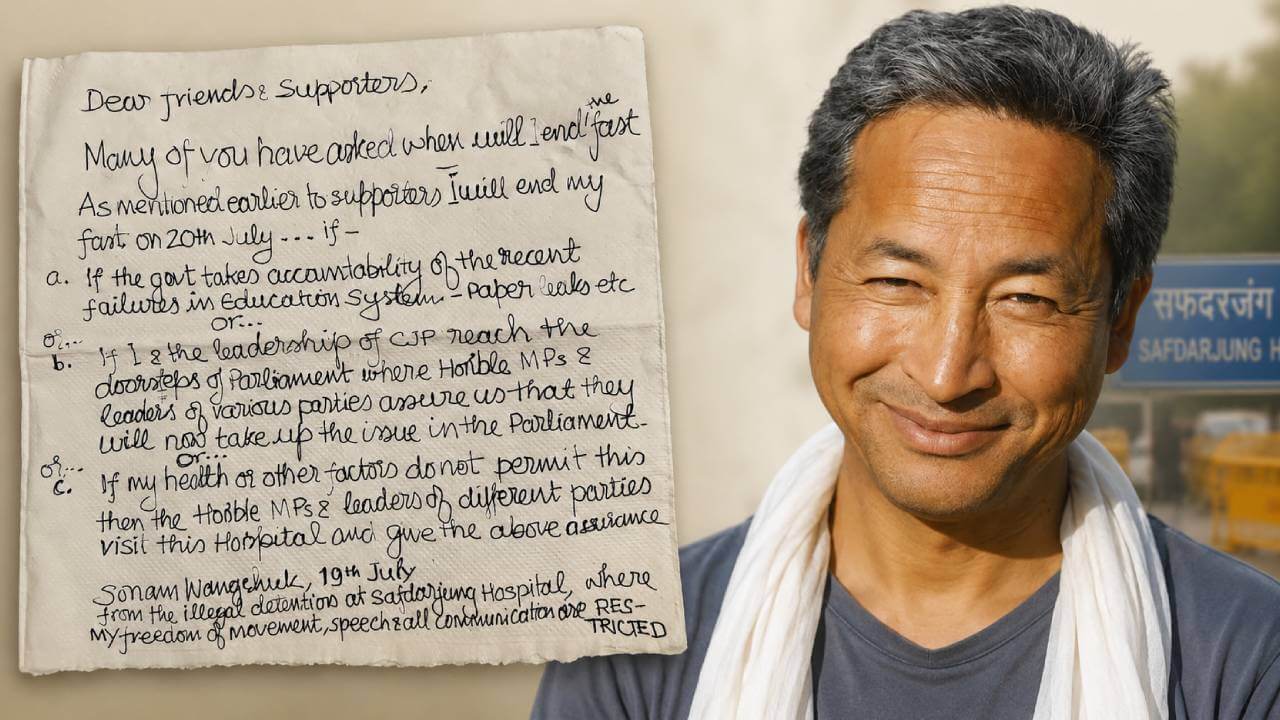 Dear friends & Supporters,
Many of you have asked when will I end the fast
As mentioned earlier to supporters I will end my
fast on 20th July --- if -
a. If the govt takes accountability of the recent
failures in Education System - Paper leaks etc
or...
or...
b. If I & the leadership of CJP reach the
doorsteps of Parliament where Hon'ble MPs &
leaders of various parties assure us that they
will now take up the issue in the Parliament-
or...
or...
c. If my health or other factors do not permit this
then the Hon'ble MPs & leaders of different parties
visit this Hospital and give the above assurance
Sonam Wangchuk, 19th July
from the illegal detentions at Safdarjung Hospital, where
My freedom of movement, speech & all communication are RES-
TRICTED
सफदरजंग
SAFDARJUNG H